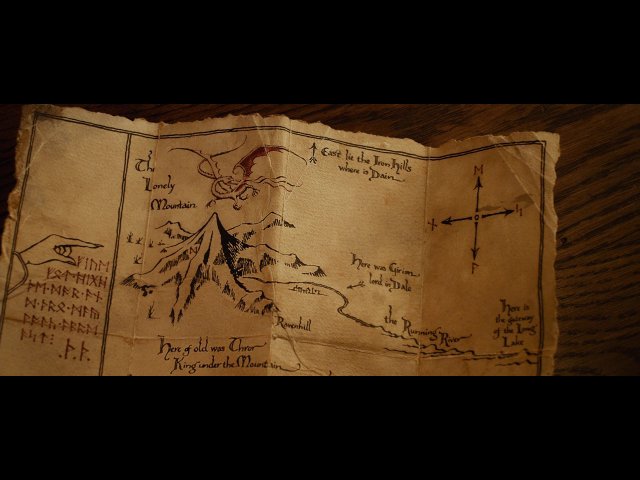 The
Lonely
Mountain
East lie the Iron Hills
where is Dain
ᚠᛁᚢᛖ
Here was Girion
lord in Dale
Ravenhill
the Running River
Here is
the gateway
of the Long
Lake
Here of old was Thror
King under the Mountain